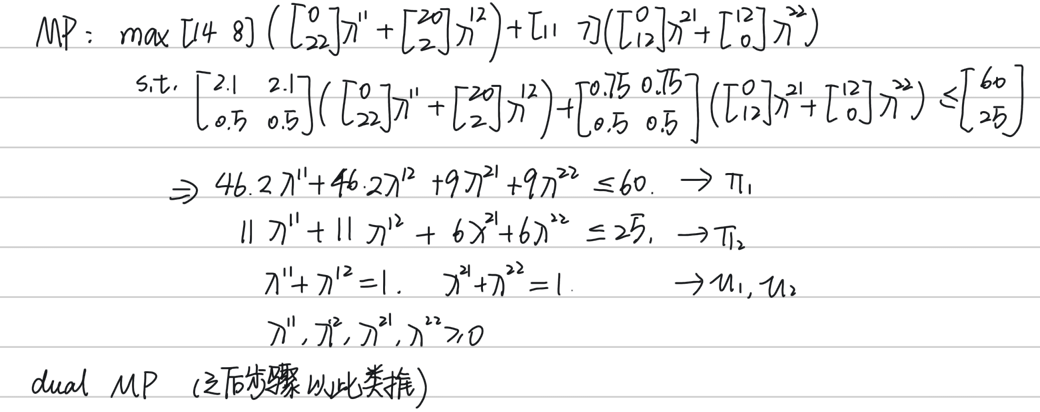 MP: max [14 8] ([0 22]λ¹¹ + [20 2]λ¹²) + [11 7]([0 12]λ²¹ + [12 0]λ²²)
s.t. [2.1 2.1 0.5 0.5]([0 22]λ¹¹ + [20 2]λ¹²) + [0.75 0.75 0.5 0.5]([0 12]λ²¹ + [12 0]λ²²) ≤ [60 25]
⇒ 46.2λ¹¹ + 46.2λ¹² + 9λ²¹ + 9λ²² ≤ 60. → π₁
11λ¹¹ + 11λ¹² + 6λ²¹ + 6λ²² ≤ 25. → π₂
λ¹¹ + λ¹² = 1. λ²¹ + λ²² = 1. → u₁, u₂
λ¹¹, λ¹², λ²¹, λ²² ≥ 0
dual MP (之后步骤以此类推)